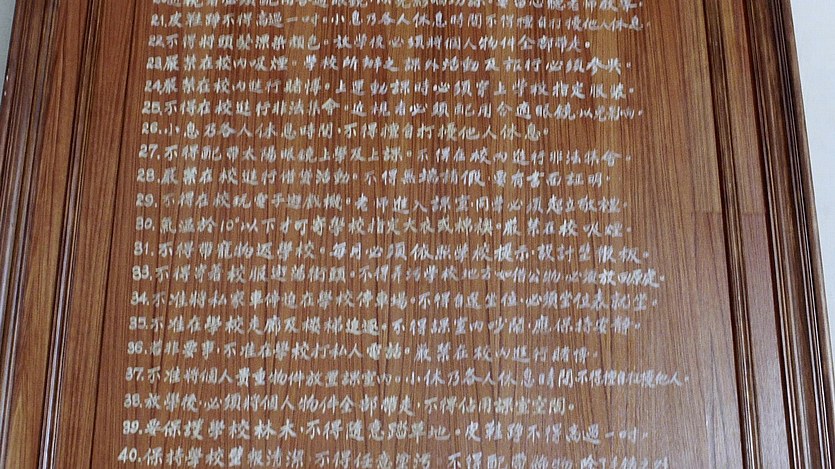 21.皮鞋踭不得高過一吋。小息乃各人休息時間不得擅自打擾他人休息.
22.不得將頭髮漂染顏色。放學後必須將個人物件全部帶走.
23.嚴禁在校內吸煙。學校所辦之課外活動及旅行必須參與.
24.嚴禁在校內進行賭博。上運動課時必須穿上學校指定服裝.
25.不得在校進行非法集會。近視者必須配用合適眼鏡以免影响
26.小息乃各人休息時間。不得擅自打擾他人休息.
27.不得配帶太陽眼鏡上學及上課。不得在校內進行非法集會.
28.嚴禁在校進行借貸活動。不得無端請假。要有書面証明.
29.不得在校玩電子遊戲機。老師進入課室.同學必須起立敬禮.
30.氣溫於10°以下才可穿學校指定大衣或棉褸。嚴禁在校吸煙.
31.不得帶寵物返學校。每月必須依照學校提示.設計壁報板.
33.不得穿着校服遊蕩街頭。不得弄污學校地方如借公物必須放回原處.
34.不准將私家車停迫在學校停車場。不得自選坐位.必須坐位表記坐.
35.不准在學校走廊及樓梯追逐。不得課室內吵鬧.應保持安靜.
36.若非要事.不准在學校打私人電話。嚴禁在校內進行賭博.
37.不准將個人貴重物件放置課室內。小休乃各人休息時間不得擅自打擾他人.
38.放學後.必須將個人物件全部帶走.不得佔用課室空間.
39.要保護學校林木.不得隨意踏草地。皮鞋踭不得高過一吋.
40.保持學校壁報清潔.不得任意塗污 不得配帶飾物